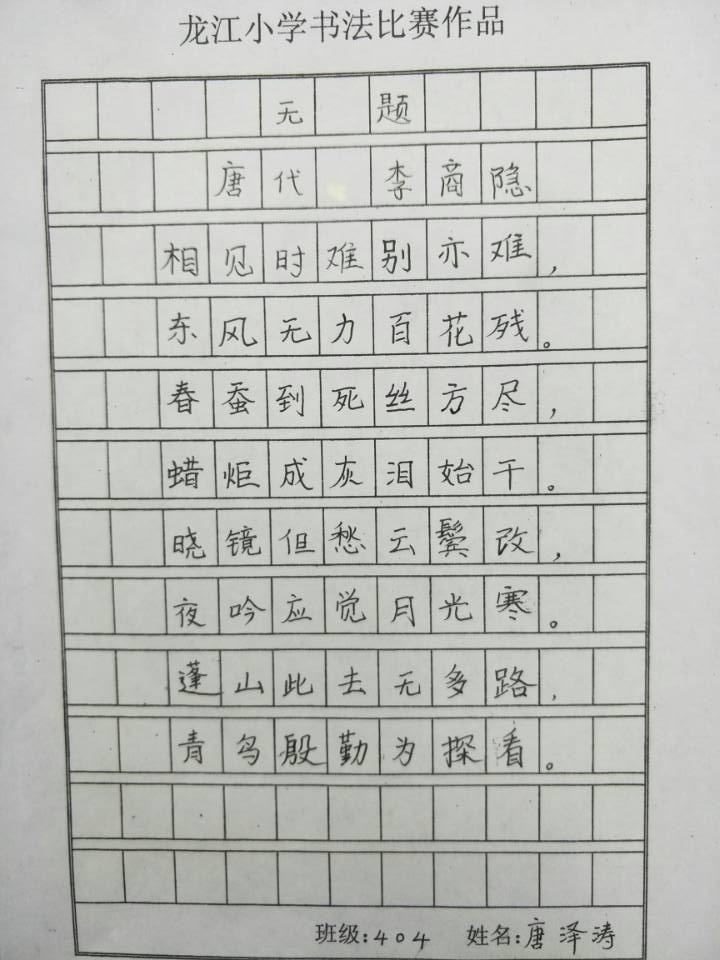 龙江小学书法比赛作品
无题
唐代 李商隐
相见时难别亦难，
东风无力百花残。
春蚕到死丝方尽，
蜡炬成灰泪始干。
晓镜但愁云鬓改，
夜吟应觉月光寒。
蓬山此去无多路，
青鸟殷勤为探看。
班级：404 姓名：唐泽涛